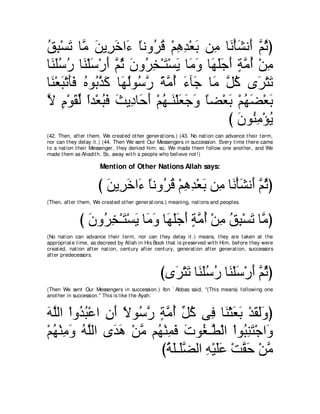 ﴿ثُمَّ أَنشَأْنَا مِن بَعْدِهِمْ قُرُوناً ءَاخَرِينَ مَّا تَسْبِقُ
مِنْ أُمَّةٍ أَجَلَهَا وَمَا يَسْتَـْخِرُونَ ثُمَّ أَرْسَلْنَا رُسُلَنَا
تَتْرَى كُلَّ مَا جَآءَ أُمَّةً رَّسُولُهَا كَذَّبُوهُ فَأَتْبَعْنَا
بَعْضَهُمْ بَعْضاً وَجَعَلْنَـهُمْ أَحَادِيثَ فَبُعْداً لِّقَوْمٍ لاَّ
يُؤْمِنُونَ ﴾
(42. Then, after them, We created other generations.) (43. No nation can advance their term,
nor can they delay it.) (44. Then We sent Our Messengers in succession. Every time there came
to a nation their Messenger, they denied him; so, We made them follow one another, and We
made them as Ahadith. So, away with a people who believe not!)
Mention of Other Nations Allah says:
﴿ثُمَّ أَنشَأْنَا مِن بَعْدِهِمْ قُرُوناً ءَاخَرِينَ ﴾
(Then, after them, We created other generations.) meaning, nations and peoples.
﴿مَّا تَسْبِقُ مِنْ أُمَّةٍ أَجَلَهَا وَمَا يَسْتَـْخِرُونَ ﴾
(No nation can advance their term, nor can they delay it.) means, they are taken at the
appropriate time, as decreed by Allah in His Book that is preserved with Him, before they were
created, nation after nation, century after century, generation after generation, successors
after predecessors.
﴿ثُمَّ أَرْسَلْنَا رُسُلَنَا تَتْرَى﴾
(Then We sent Our Messengers in succession.) Ibn `Abbas said, "(This means) following one
another in succession.'' This is like the Ayah:
﴿وَلَقَدْ بَعَثْنَا فِى كُلِّ أُمَّةٍ رَّسُولاً أَنِ اعْبُدُواْ اللَّهَ
وَاجْتَنِبُواْ الْطَّـغُوتَ فَمِنْهُم مَّنْ هَدَى اللَّهُ وَمِنْهُمْ
مَّنْ حَقَّتْ عَلَيْهِ الضَّلَـلَةُ﴾